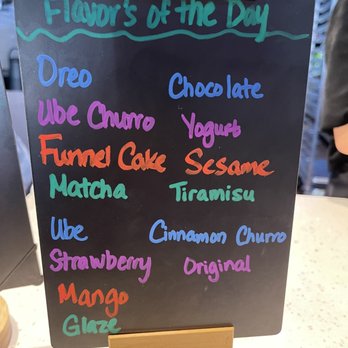 Flavor's of the Day
Oreo
Chocolate
Ube Churro
Yogurt
Funnel Cake
Sesame
Matcha
Tiramisu
Ube
Cinnamon Churro
Strawberry
Original
Mango
Glaze